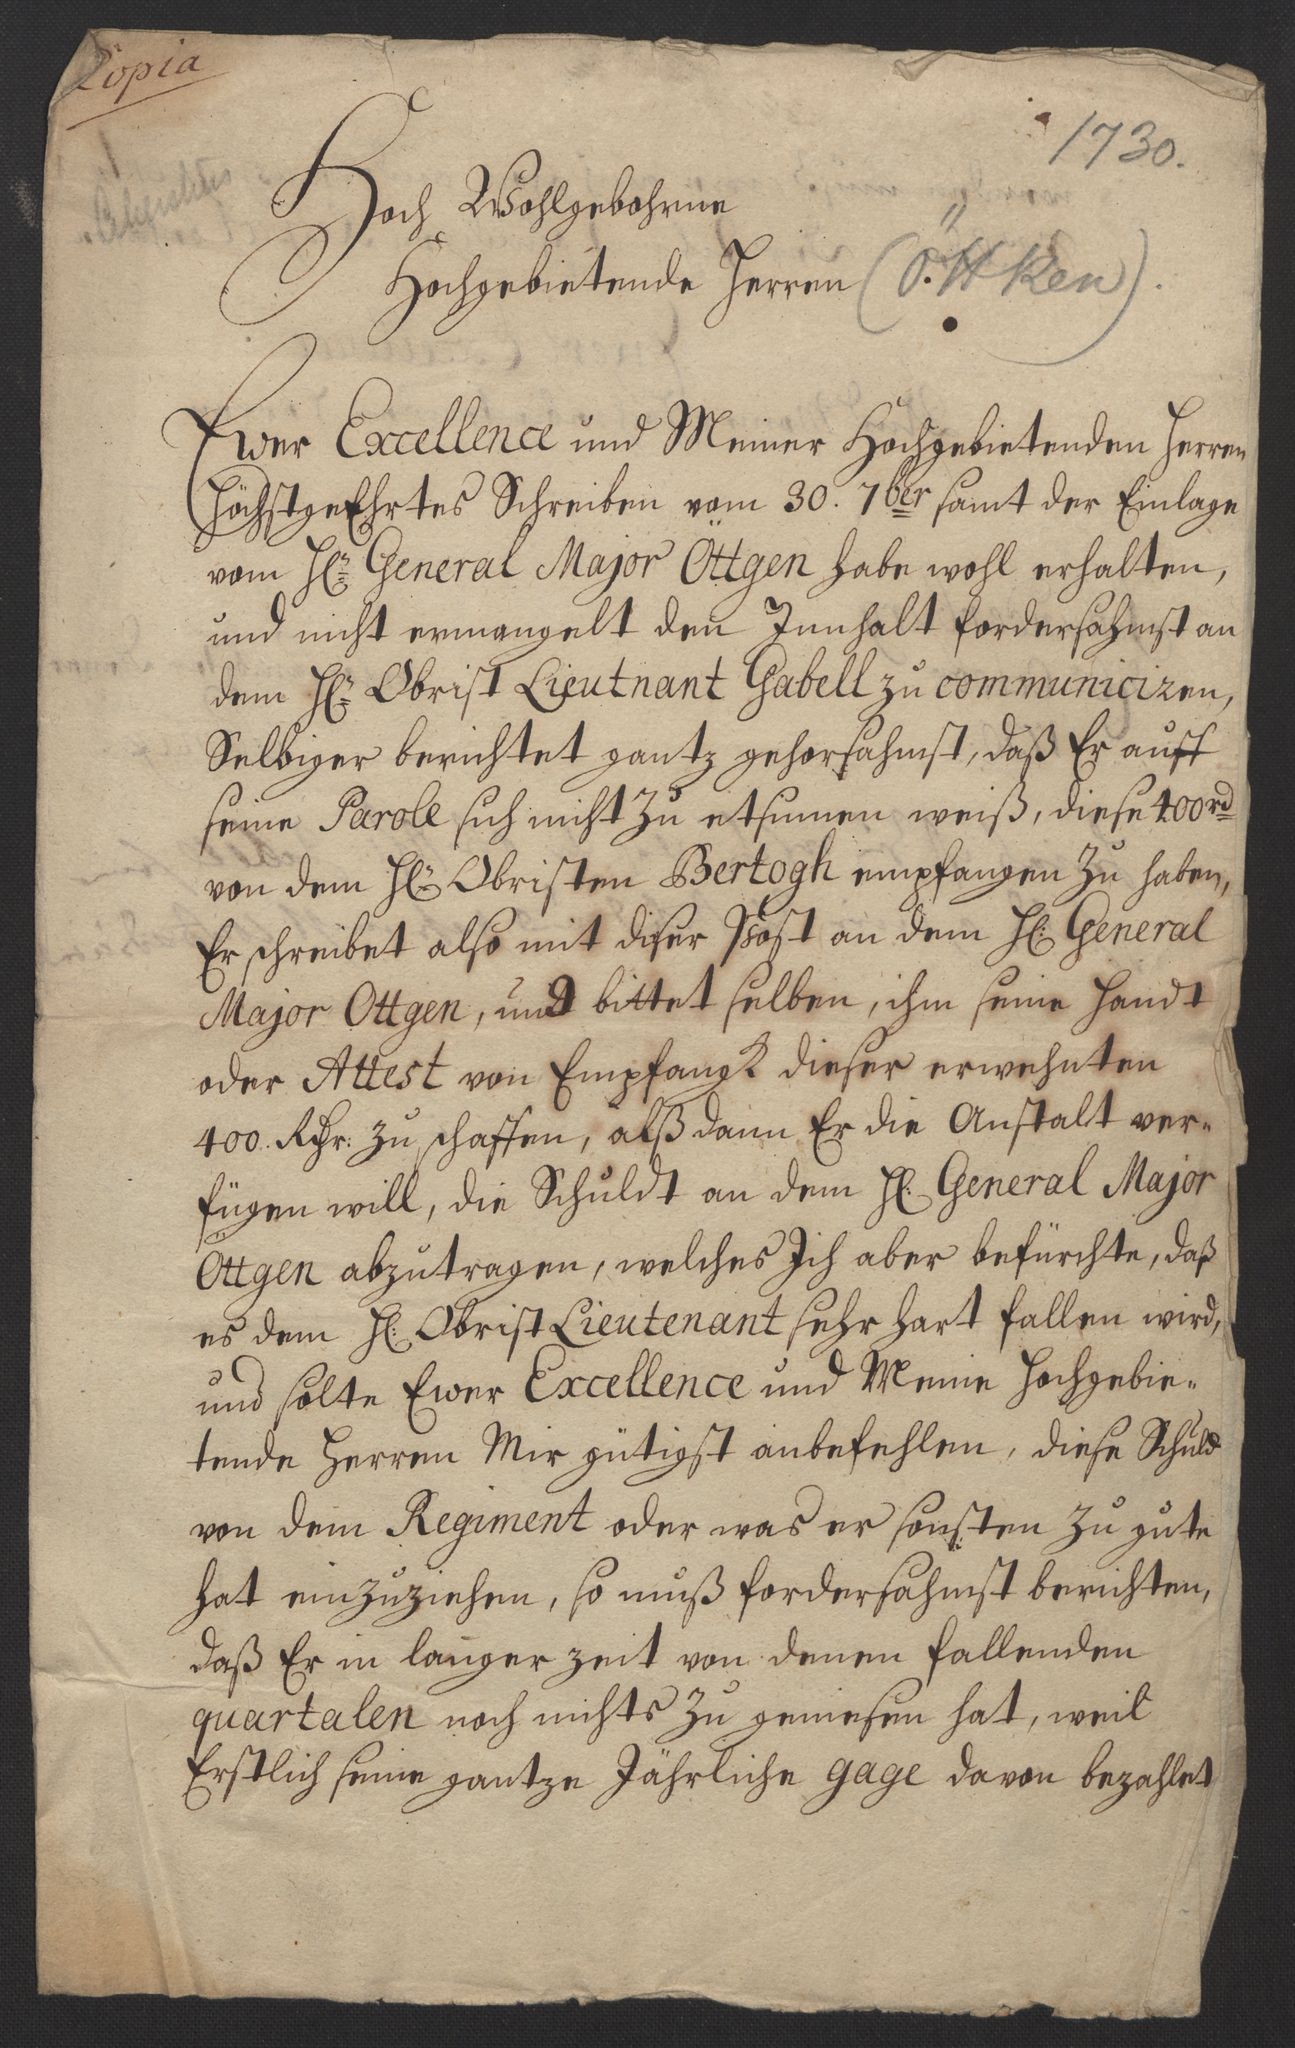 Copia
1730.
Hoch Wohlgebohrne
Hochgebietende Herren (Öttken).
Ewer Excellence und Meiner Hochgebietenden Herren
HöchstgeEhrtes Schreiben vom 30. 7ber samt der Einlage
vom H. General Major Öttgen habe wohl erhalten,
und nicht ermangelt den Innhalt fordersahmst an
dem H. Obrist Lieutnant Gabell zu communiciren,
Selbiger berichtet gantz gehorsahmst, daß Er auff
seine Parole sich nicht zu etsinnen weiß, diese 400 rd
von dem H. Obristen Bertogh empfangen zu haben,
Er schreibet also mit diser Post an dem H. General
Major Ottgen, und bittet selben, ihm seine Handt
oder Attest von Empfangk dieser erwehnten
400. Rthr: zu schaffen, alß dann Er die Anstalt ver-
fügen will, die Schuldt an dem H. General Major
Öttgen abzutragen, welches Ich aber befürchte, daß
es dem H. Obrist Lieutenant sehr hart fallen wird,
und solte Ewer Excellence und Meine Hochgebie-
tende Herren Mir gütigst anbefehlen, diese Schuld
von dem Regiment oder was er sonsten zu gute
hat einzuziehen, so muß fordersahmst berichten,
daß Er in langer zeit von denen fallenden
quartalen noch nichts zu geniesen hat, weil
Erstlich seine gantze Jährliche gage davon bezahlet